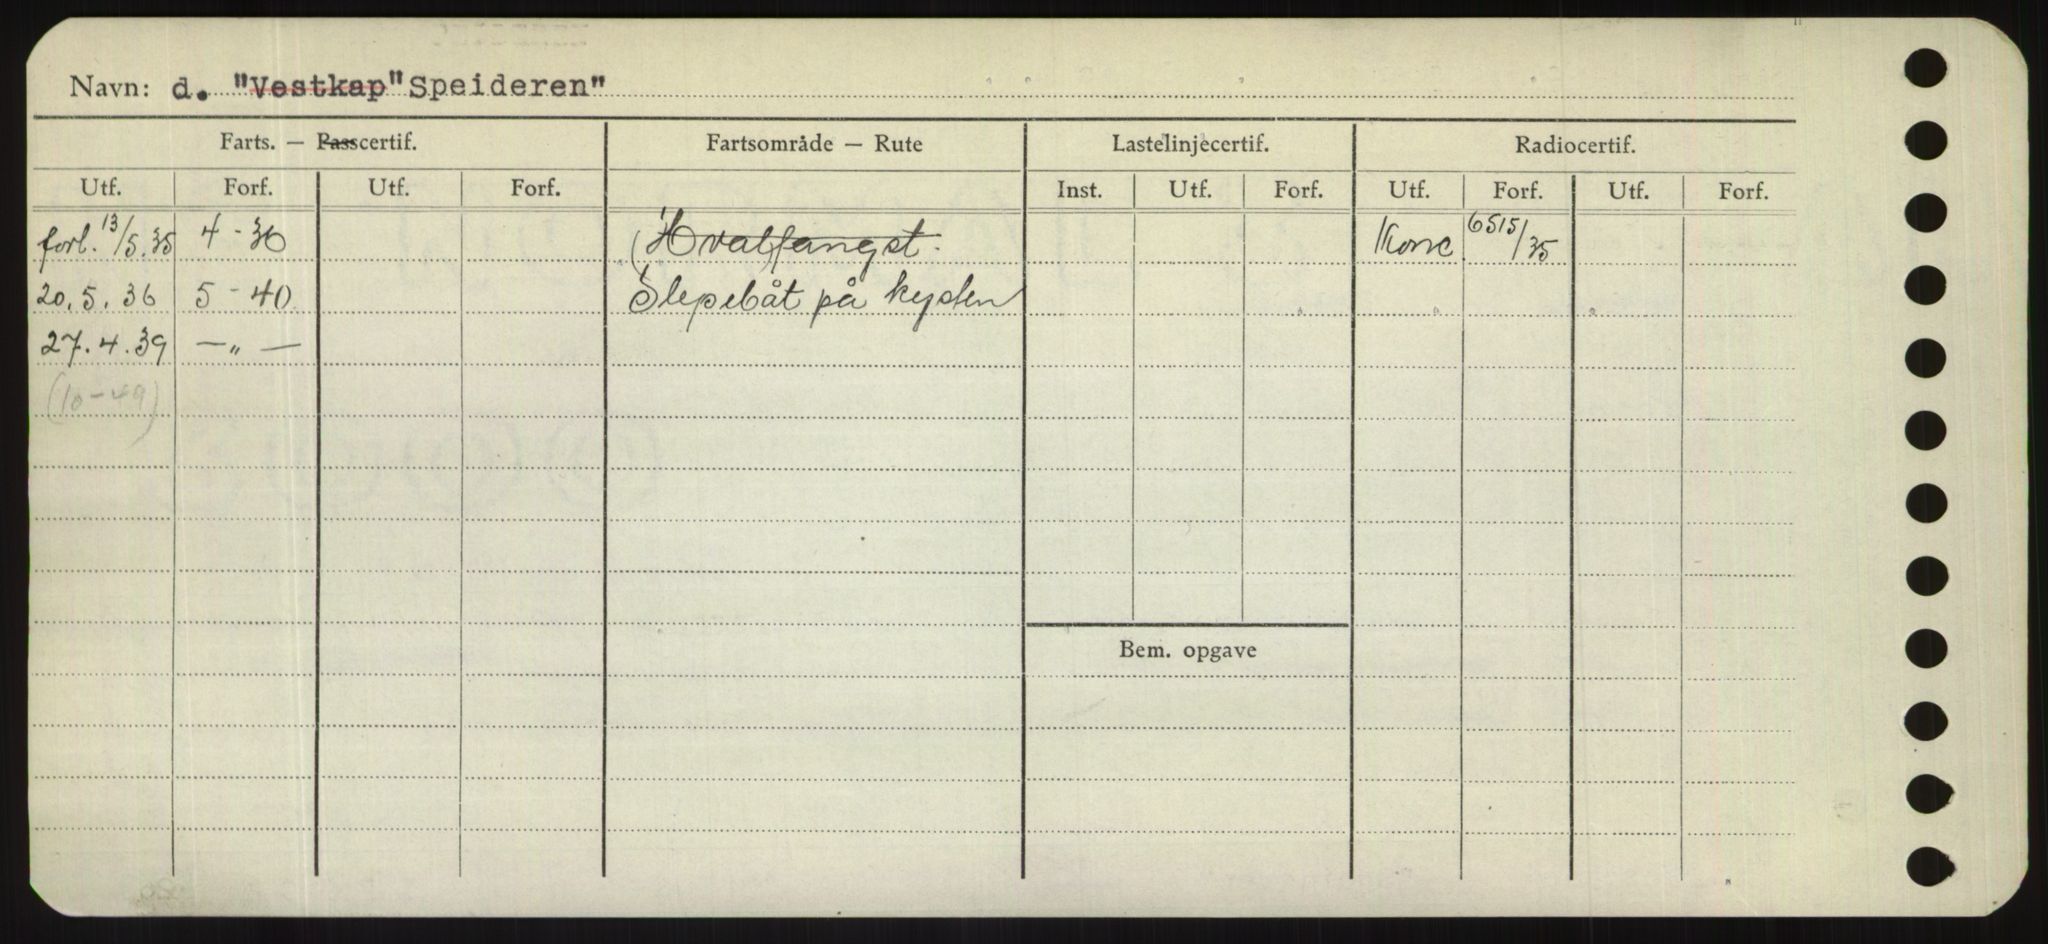 Navn: d. "Vestkap" Speideren"
Farts. — Passcertif. Fartsområde — Rute Lastelinjecertif. Radiocertif.
Utf. Forf. Utf. Forf. Inst. Utf. Forf. Utf. Forf. Utf. Forf.
forl. 13/5.35 4 - 36 (Hvalfangst. Konc 6515/35
20.5.36 5 - 40 Slepebåt på kysten
27.4.39 — „ —
(10-49)
Bem. opgave